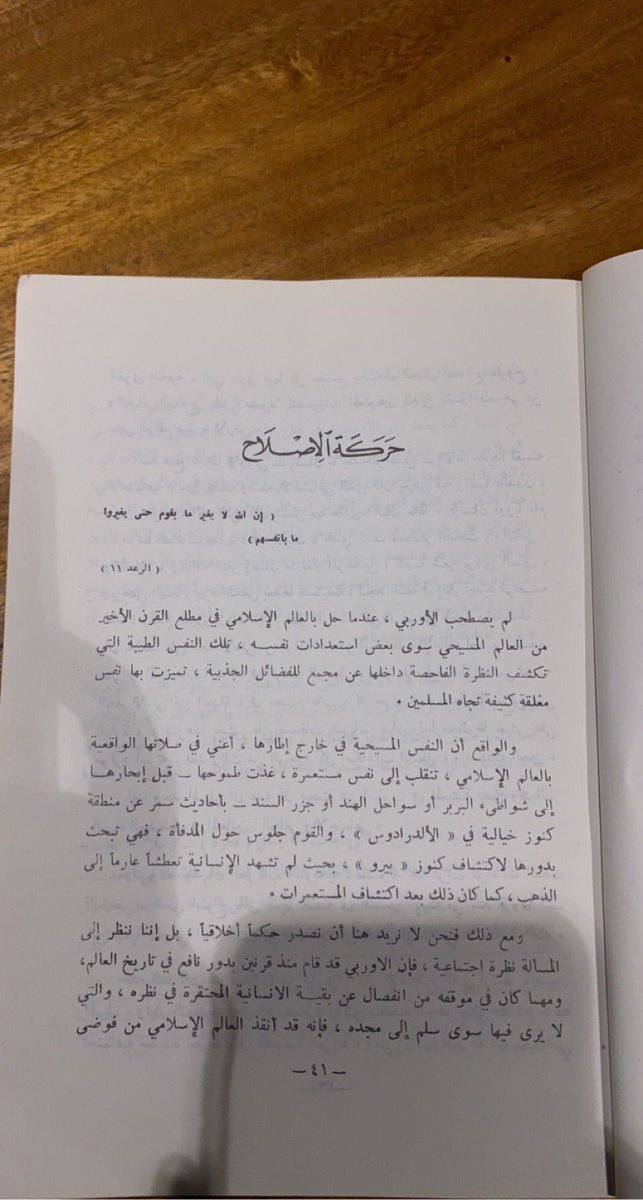 حَرَكَة ٱلإِصْلَاح
( إن الله لا يغير ما بقوم حتى يغيروا
ما بأنفسهم )
( الرعد ١١ )
لم يصطحب الأوربي ، عندما حل بالعالم الإسلامي في مطلع القرن الأخير
من العالم المسيحي سوى بعض استعدادات نفسه ، تلك النفس الطيبة التي
تكشف النظرة الفاحصة داخلها عن مجمع للفضائل الجذبية ، تميزت بها نفس
مغلقة كثيفة تجاه المسلمين .
والواقع أن النفس المسيحية في خارج إطارها ، أعني في صلاتها الواقعية
بالعالم الإسلامي ، تنقلب إلى نفس مستعمرة ، غذت طموحها – قبل إبحارها
إلى شواطىء البربر أو سواحل الهند أو جزر السند – بأحاديث سمر عن منطقة
كنوز خيالية في « الألدرادوس » ، والقوم جلوس حول المدفأة ، فهي تبحث
بدورها لاكتشاف كنوز « بيرو » ، بحيث لم تشهد الإنسانية تعطشاً عارماً إلى
الذهب ، كما كان ذلك بعد اكتشاف المستعمرات .
ومع ذلك فنحن لا نريد هنا أن نصدر حكماً أخلاقياً ، بل إننا ننظر إلى
المسألة نظرة اجتماعية ، فإن الاوربي قد قام منذ قرنين بدور نافع في تاريخ العالم،
ومهما كان في موقفه من انفصال عن بقية الانسانية المحتقرة في نظره ، والتي
لا يرى فيها سوى سلم إلى مجده ، فإنه قد أنقذ العالم الإسلامي من فوضى
– ٤١ –